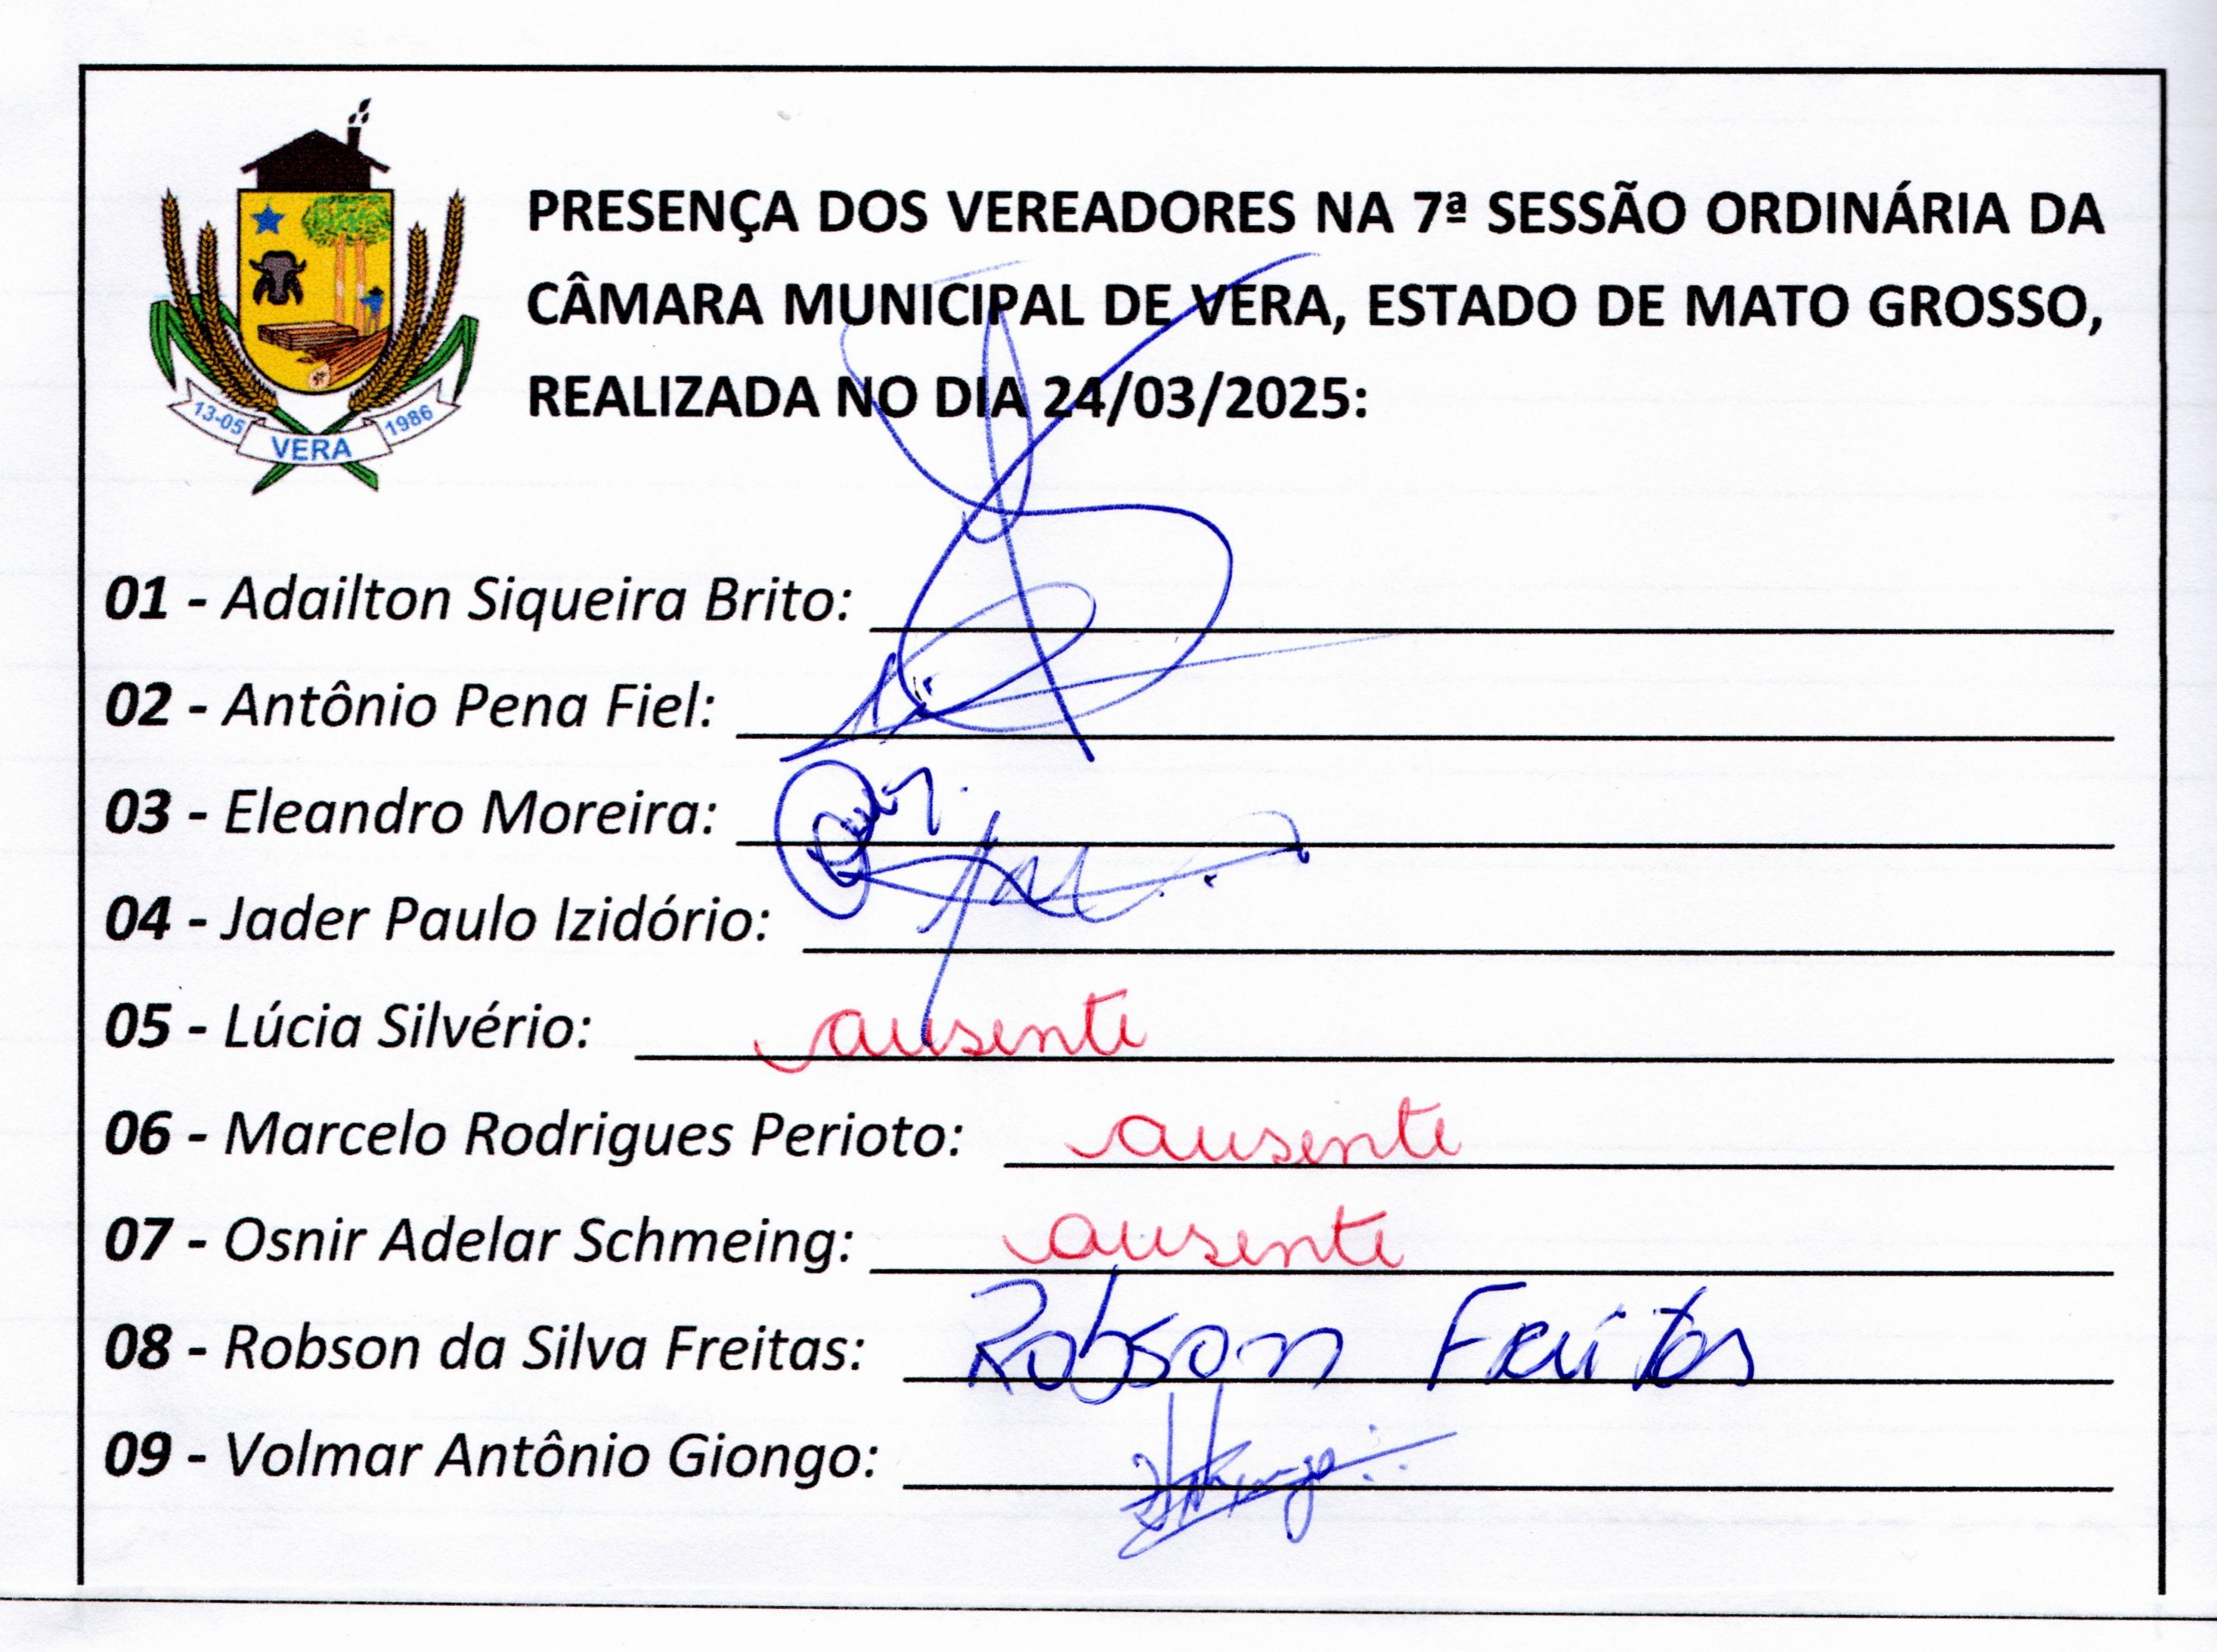 PRESENÇA DOS VEREADORES NA 7ª SESSÃO ORDINÁRIA DA
CÂMARA MUNICIPAL DE VERA, ESTADO DE MATO GROSSO,
REALIZADA NO DIA 24/03/2025:
13-05 VERA 1986
01 - Adailton Siqueira Brito:
02 - Antônio Pena Fiel:
03 - Eleandro Moreira:
04 - Jader Paulo Izidório:
05 - Lúcia Silvério: ausente
06 - Marcelo Rodrigues Perioto: ausente
07 - Osnir Adelar Schmeing: ausente
08 - Robson da Silva Freitas: Robson Freitas
09 - Volmar Antônio Giongo: